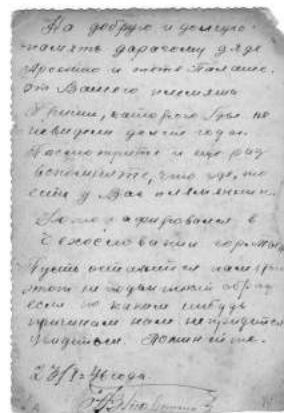 На добрую и долгую
память дарагому дяде
Арсению и тёте Палаше.
от Вашего племяша
которого Вы не
невидели долгие годы.
Посмотрите и ещё раз
вспомните, что где, то
есть у Вас племянник.
Фотографировался в
Чехословакии гор.
Пусть останется вам
этот не подвижный образ
если по каким нибудь
причинам нам непридется
увидеться. Помните.
46 года.